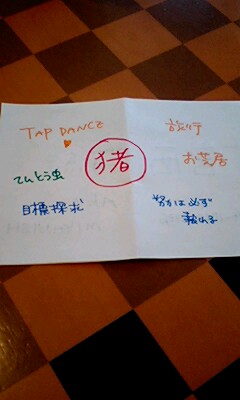 TAP DANCE
旅行
お芝居
猪
てんとう虫
目標探求
努力は必ず
報われる